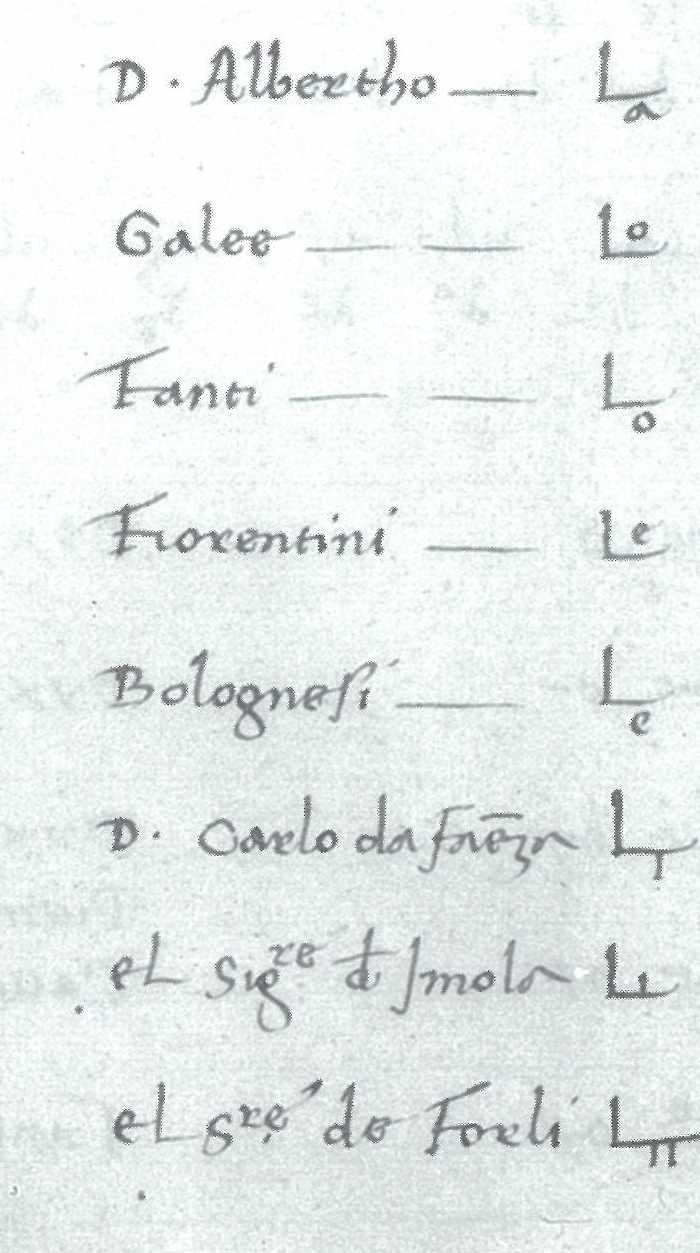 D. Albertho — L a
Galee — — L o
Fanti — — L o
Fiorentini — L e
Bolognesi — L e
D. Carlo da faēza L
el sigre d Imola L
el Sre de Forli L